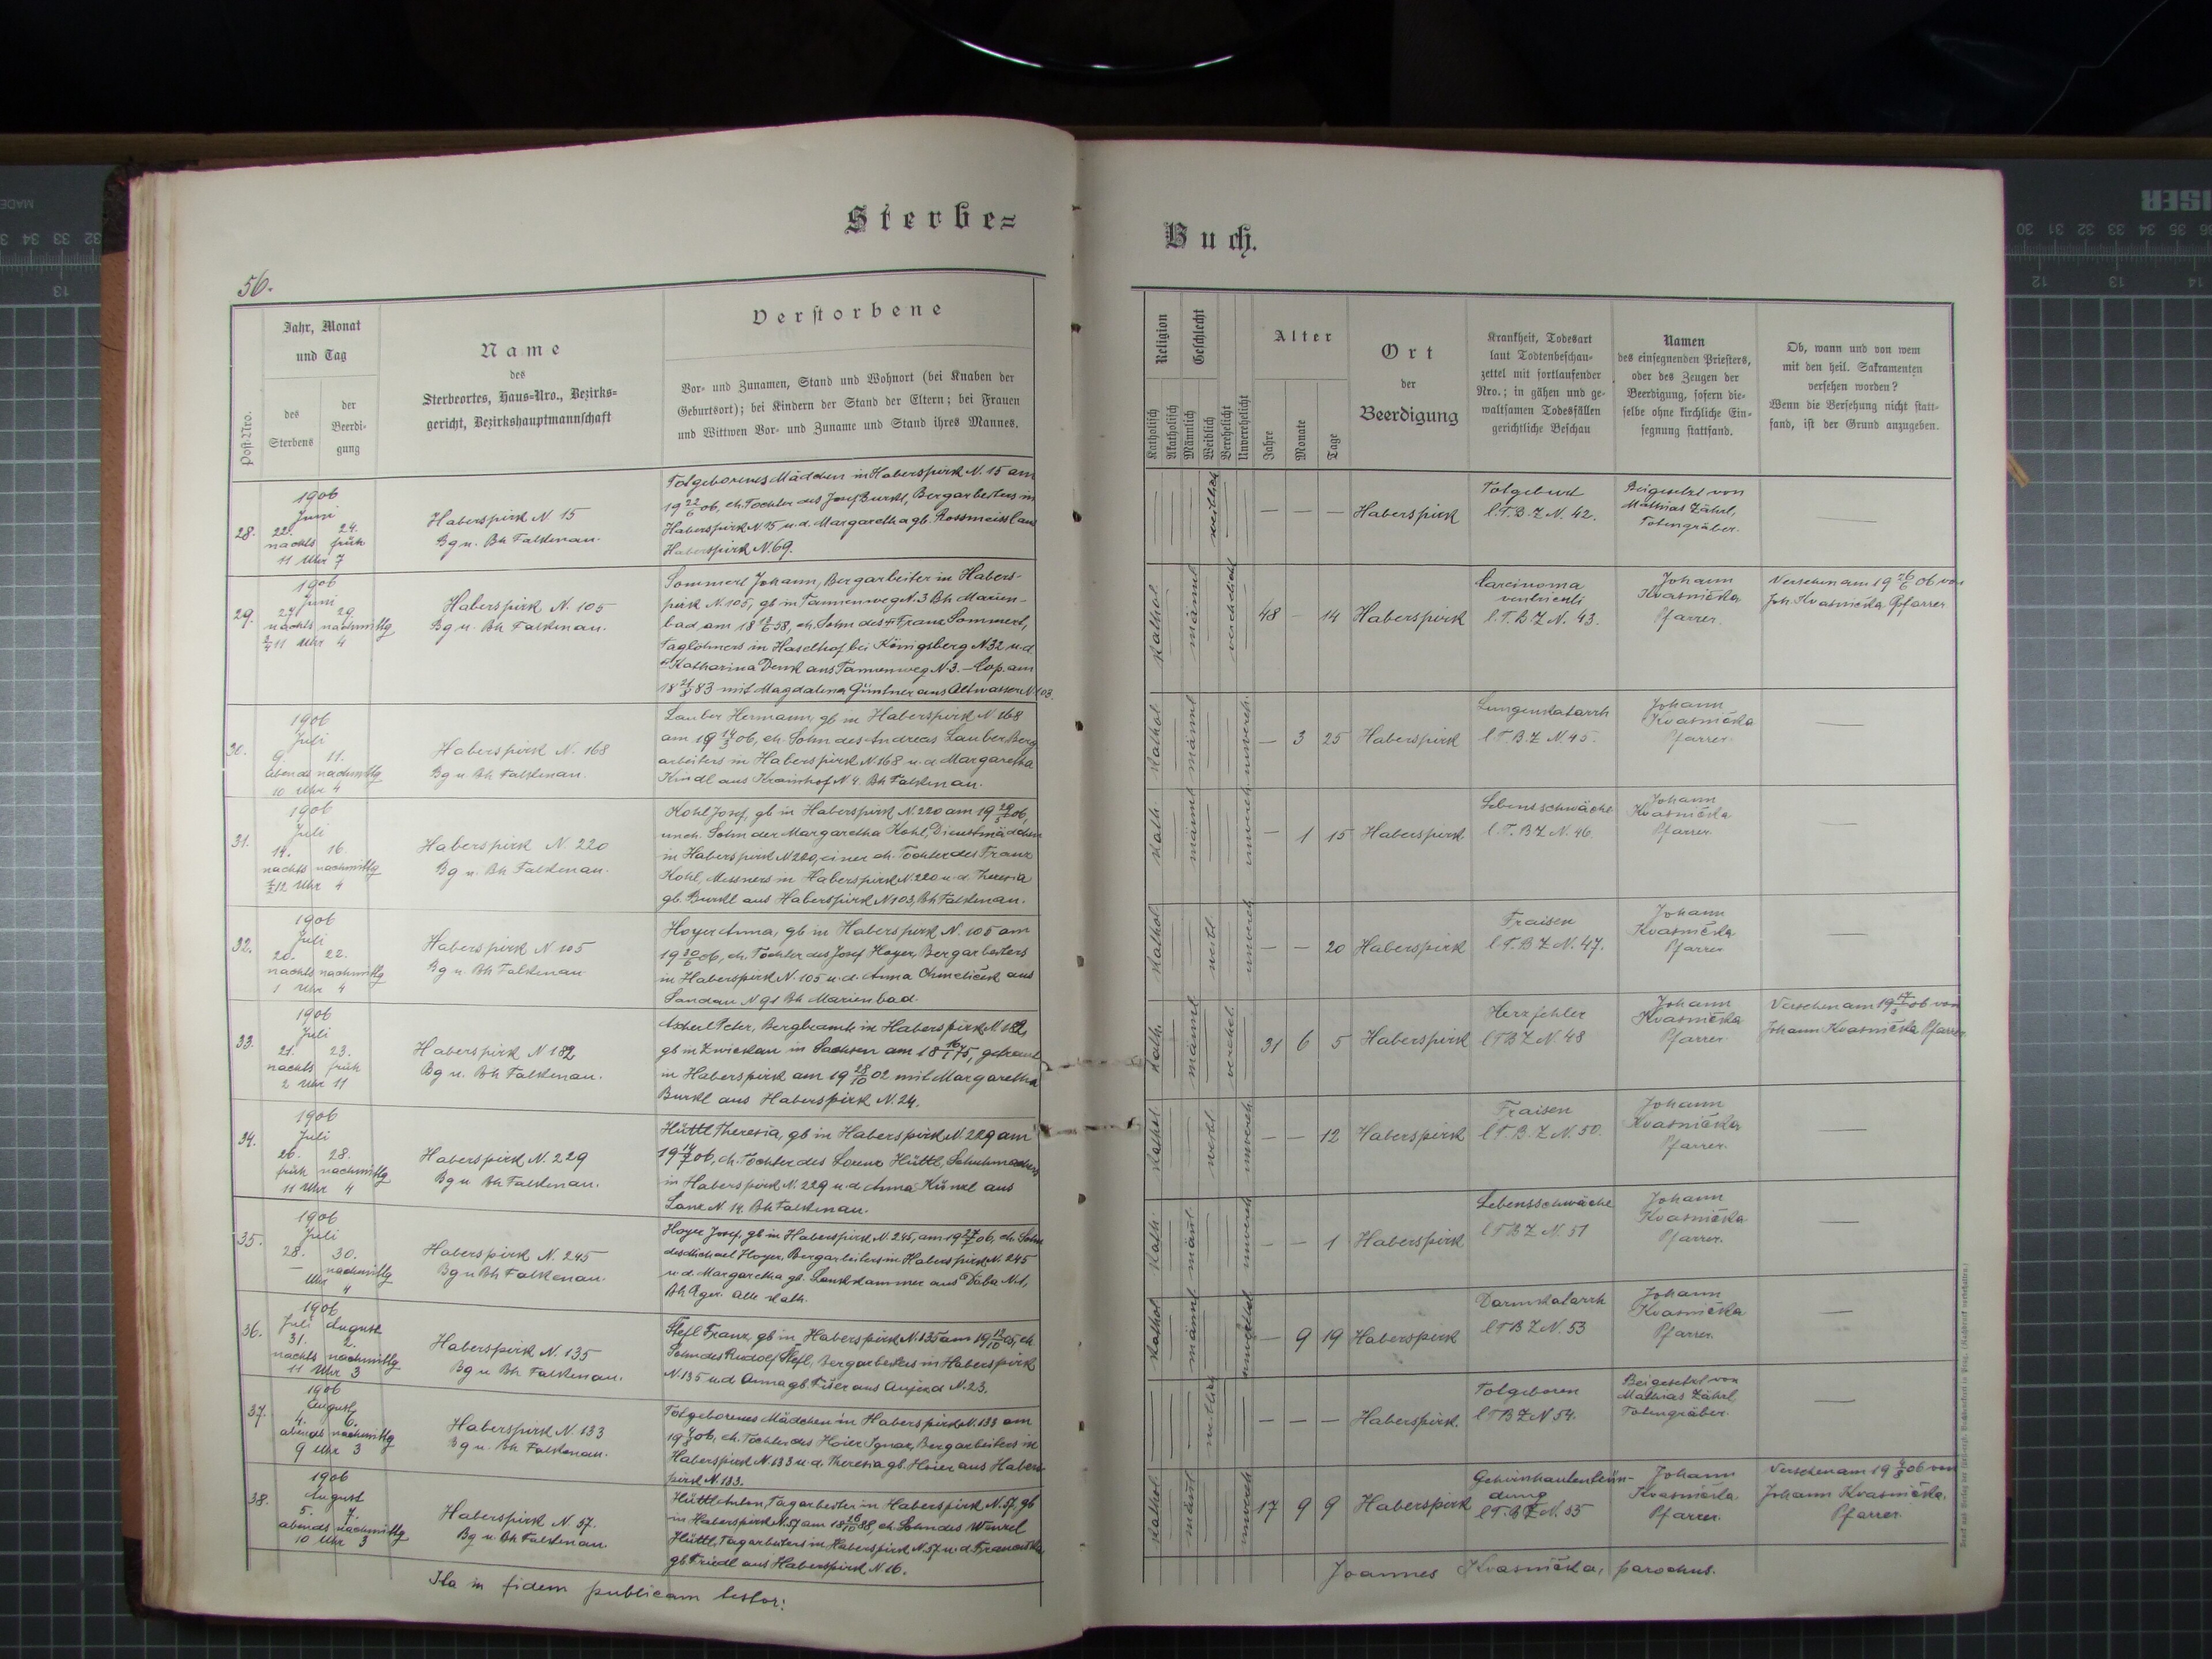 Sterbe=
Buch.
56.
Post-Nro.
Jahr, Monat
und Tag
des
Sterbens
der
Beerdi-
gung
Name
des
Sterbeortes, Haus-Nro., Bezirks-
gericht, Bezirkshauptmannschaft
Verstorbene
Vor- und Zunamen, Stand und Wohnort (bei Knaben der
Geburtsort); bei Kindern der Stand der Eltern; bei Frauen
und Wittwen Vor- und Zuname und Stand ihres Mannes.
Religion
Katholisch
Akatholisch
Geschlecht
Männlich
Weiblich
Verehelicht
Unverehelicht
Alter
Jahre
Monate
Tage
Ort
der
Beerdigung
Krankheit, Todesart
laut Todtenbeschau-
zettel mit fortlaufender
Nro.; in gähen und ge-
waltsamen Todesfällen
gerichtliche Beschau
Namen
des einsegnenden Priesters,
oder des Zeugen der
Beerdigung, sofern die-
selbe ohne kirchliche Ein-
segnung stattfand.
Ob, wann und von wem
mit den heil. Sakramenten
versehen worden?
Wenn die Versehung nicht statt-
fand, ist der Grund anzugeben.
28.
1906
Juni
22. 24.
nachts früh
11 Uhr 7
Haberspirk N. 15
Bg u. Bh Falkenau.
Totgeborenes Mädchen in Haberspirk N. 15 am
19 22/6 06, eh. Tochter des Josef Burkl, Bergarbeiters in
Haberspirk N 15 u. d. Margaretha gb. Rossmeissl aus
Haberspirk N. 69.
weiblich
— — — Haberspirk
Totgeburt
l. T. B. Z N. 42.
Beigesetzt von
Mathias Zährl,
Totengräber.
29.
1906
Juni
27. 29.
nachts nachmittg
3/4 11 Uhr 4
Haberspirk N. 105
Bg u. Bh Falkenau.
Sommerl Johann, Bergarbeiter in Habers-
pirk N. 105, gb in Tannenweg N. 3 Bh Marien-
bad am 18 13/6 58, eh. Sohn des † Franz Sommerl,
Taglöhners in Haselhof bei Königsberg N 32 u. d.
† Katharina Denk aus Tannenweg N 3. – Cop. am
18 21/8 83 mit Magdalena Güntner aus Altwasser N 103.
kathol.
männl
verehelicht
48 — 14 Haberspirk
Carcinoma
ventriculi
l. T. B. Z N. 43.
Johann
Kvasnička
Pfarrer.
Versehen am 19 26/6 06 von
Joh. Kvasnička Pfarrer
30.
1906
Juli
9. 11.
abends nachmittg
10 Uhr 4
Haberspirk N. 168
Bg u. Bh Falkenau.
Lauber Hermann, gb in Haberspirk N 168
am 19 14/3 06, eh. Sohn des Andreas Lauber Berg
arbeiters in Haberspirk N. 168 u. d. Margaretha
Kindl aus Kramhof N 4. Bh Falkenau.
kathol.
männl
unvereh.
— 3 25 Haberspirk
Lungenkatarrh
l. T. B. Z N. 45.
Johann
Kvasnička
Pfarrer.
31.
1906
Juli
14. 16.
nachts nachmittg
1/2 12 Uhr 4
Haberspirk N. 220
Bg u. Bh Falkenau.
Kohl Josef, gb in Haberspirk N. 220 am 19 29/5 06,
uneh. Sohn der Margaretha Kohl, Dienstmädchen
in Haberspirk N 220, einer eh. Tochter des Franz
Kohl, Messners in Haberspirk N. 220 u. d. Theresia
gb. Burkl aus Haberspirk N 103, Bh Falkenau.
kath.
männl
unvereh
— 1 15 Haberspirk
Lebensschwäche
l. T. B Z N. 46
Johann
Kvasnička
Pfarrer.
32.
1906
Juli
20. 22.
nachts nachmittg
1 Uhr 4
Haberspirk N 105
Bg u. Bh Falkenau
Hoyer Anna, gb in Haberspirk N. 105 am
19 30/6 06, eh. Tochter des Josef Hoyer, Bergarbeiters
in Haberspirk N. 105 u. d. Anna Chmeliček aus
Sandau N 91 Bh Marienbad.
kathol.
weibl
unvereh
— — 20 Haberspirk
Fraisen
l. T. B Z N. 47.
Johann
Kvasnička
Pfarrer
33.
1906
Juli
21. 23.
nachts früh
2 Uhr 11
Haberspirk N 182
Bg u. Bh Falkenau.
Ascherl Peter, Bergbeamte in Haberspirk N 182,
gb in Zwickau in Sachsen am 18 16/1 75, getraut
in Haberspirk am 19 28/10 02 mit Margaretha
Burkl aus Haberspirk N. 24.
kath.
männl
verehel.
31 6 5 Haberspirk
Herzfehler
l T B Z N. 48
Johann
Kvasnička
Pfarrer.
Johann Kvasnička Pfarrer
34.
1906
Juli
26. 28.
früh nachmittg
11 Uhr 4
Haberspirk N. 229
Bg u Bh Falkenau.
Hüttl Theresia, gb in Haberspirk N. 229 am
19 14/7 06, eh. Tochter des Lorenz Hüttl, Schuhmachers
in Haberspirk N. 229 u. d. Anna Künzl aus
Lanz N. 14. Bh Falkenau.
kathol
weibl
unvereh.
— — 12 Haberspirk
Fraisen
l T. B. Z N. 50.
Johann
Kvasnička
Pfarrer.
35.
1906
Juli
28. 30.
— nachmittg
Uhr 4
Haberspirk N. 245
Bg u Bh Falkenau.
Hoyer Josef, gb in Haberspirk N. 245, am 19 27/7 06, eh. Sohn
des Michael Hoyer, Bergarbeiters in Haberspirk N. 245
u. d. Margaretha gb. Lanzkammer aus Daba N. 1,
Bh Eger. Alle kath.
kath.
männl
unvereh
— — 1 Haberspirk
Lebensschwäche
l T B Z N. 51
Johann
Kvasnička
Pfarrer.
36.
1906
Juli August
31. 2.
nachts nachmittg
11 Uhr 3
Haberspirk N. 135
Bg u Bh Falkenau.
Stefl Franz, gb in Haberspirk N. 135 am 19 12/10 05, eh
Sohn des Rudolf Stefl, Bergarbeiters in Haberspirk
N. 135 u. d Anna gb. Fišer aus Aujezd N. 23.
kathol
männl
— 9 19 Haberspirk
Darmkatarrh
l T B Z N. 53
Johann
Kvasnička
Pfarrer.
37.
1906
August
4. 6.
abends nachmittg
9 Uhr 3
Haberspirk N. 133
Bg u. Bh Falkenau.
Totgeborenes Mädchen in Haberspirk N. 133 am
19 4/8 06, eh. Tochter des Hoier Ignaz, Bergarbeiters in
Haberspirk N. 133 u. d. Theresia gb. Hoier aus Habers-
pirk N. 133.
weiblich
— — — Haberspirk.
Totgeboren
l T B Z N 54.
Beigesetzt von
Mathias Zährl
Totengräber.
38.
1906
August
5. 7.
abends nachmittg
10 Uhr 3
Haberspirk N. 57.
Bg u. Bh Falkenau
Hüttl Anton, Tagarbeiter in Haberspirk N. 57, gb
in Haberspirk N. 57 am 18 26/10 88, eh. Sohn des Wenzel
Hüttl, Tagarbeiters in Haberspirk N. 57 u. d. Franziska
gb Friedl aus Haberspirk N. 16.
kathol.
männl
unvereh
17 9 9 Haberspirk
Gehirnhautentzün-
dung
l T. B Z N. 55
Johann
Kvasnička
Pfarrer.
Versehen am 19 4/8 06 von
Johann Kvasnička,
Pfarrer.
Ita in fidem publicam testor:
Joannes Kvasnička, parochus.